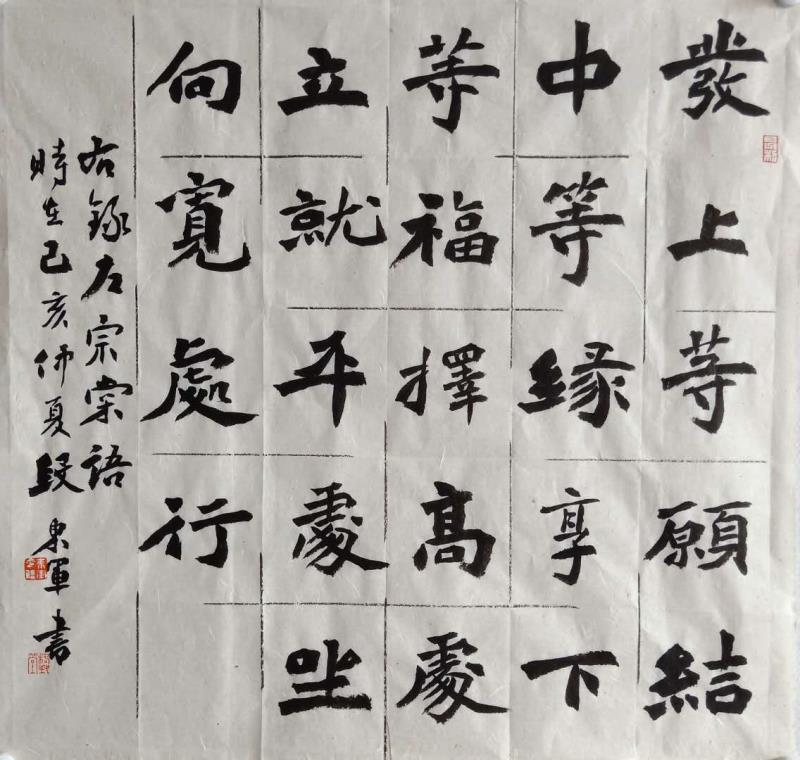 發上等願結
中等緣享下
等福擇高處
立就平處坐
向寬處行
右錄左宗棠語
時在己亥仲夏段東軍書